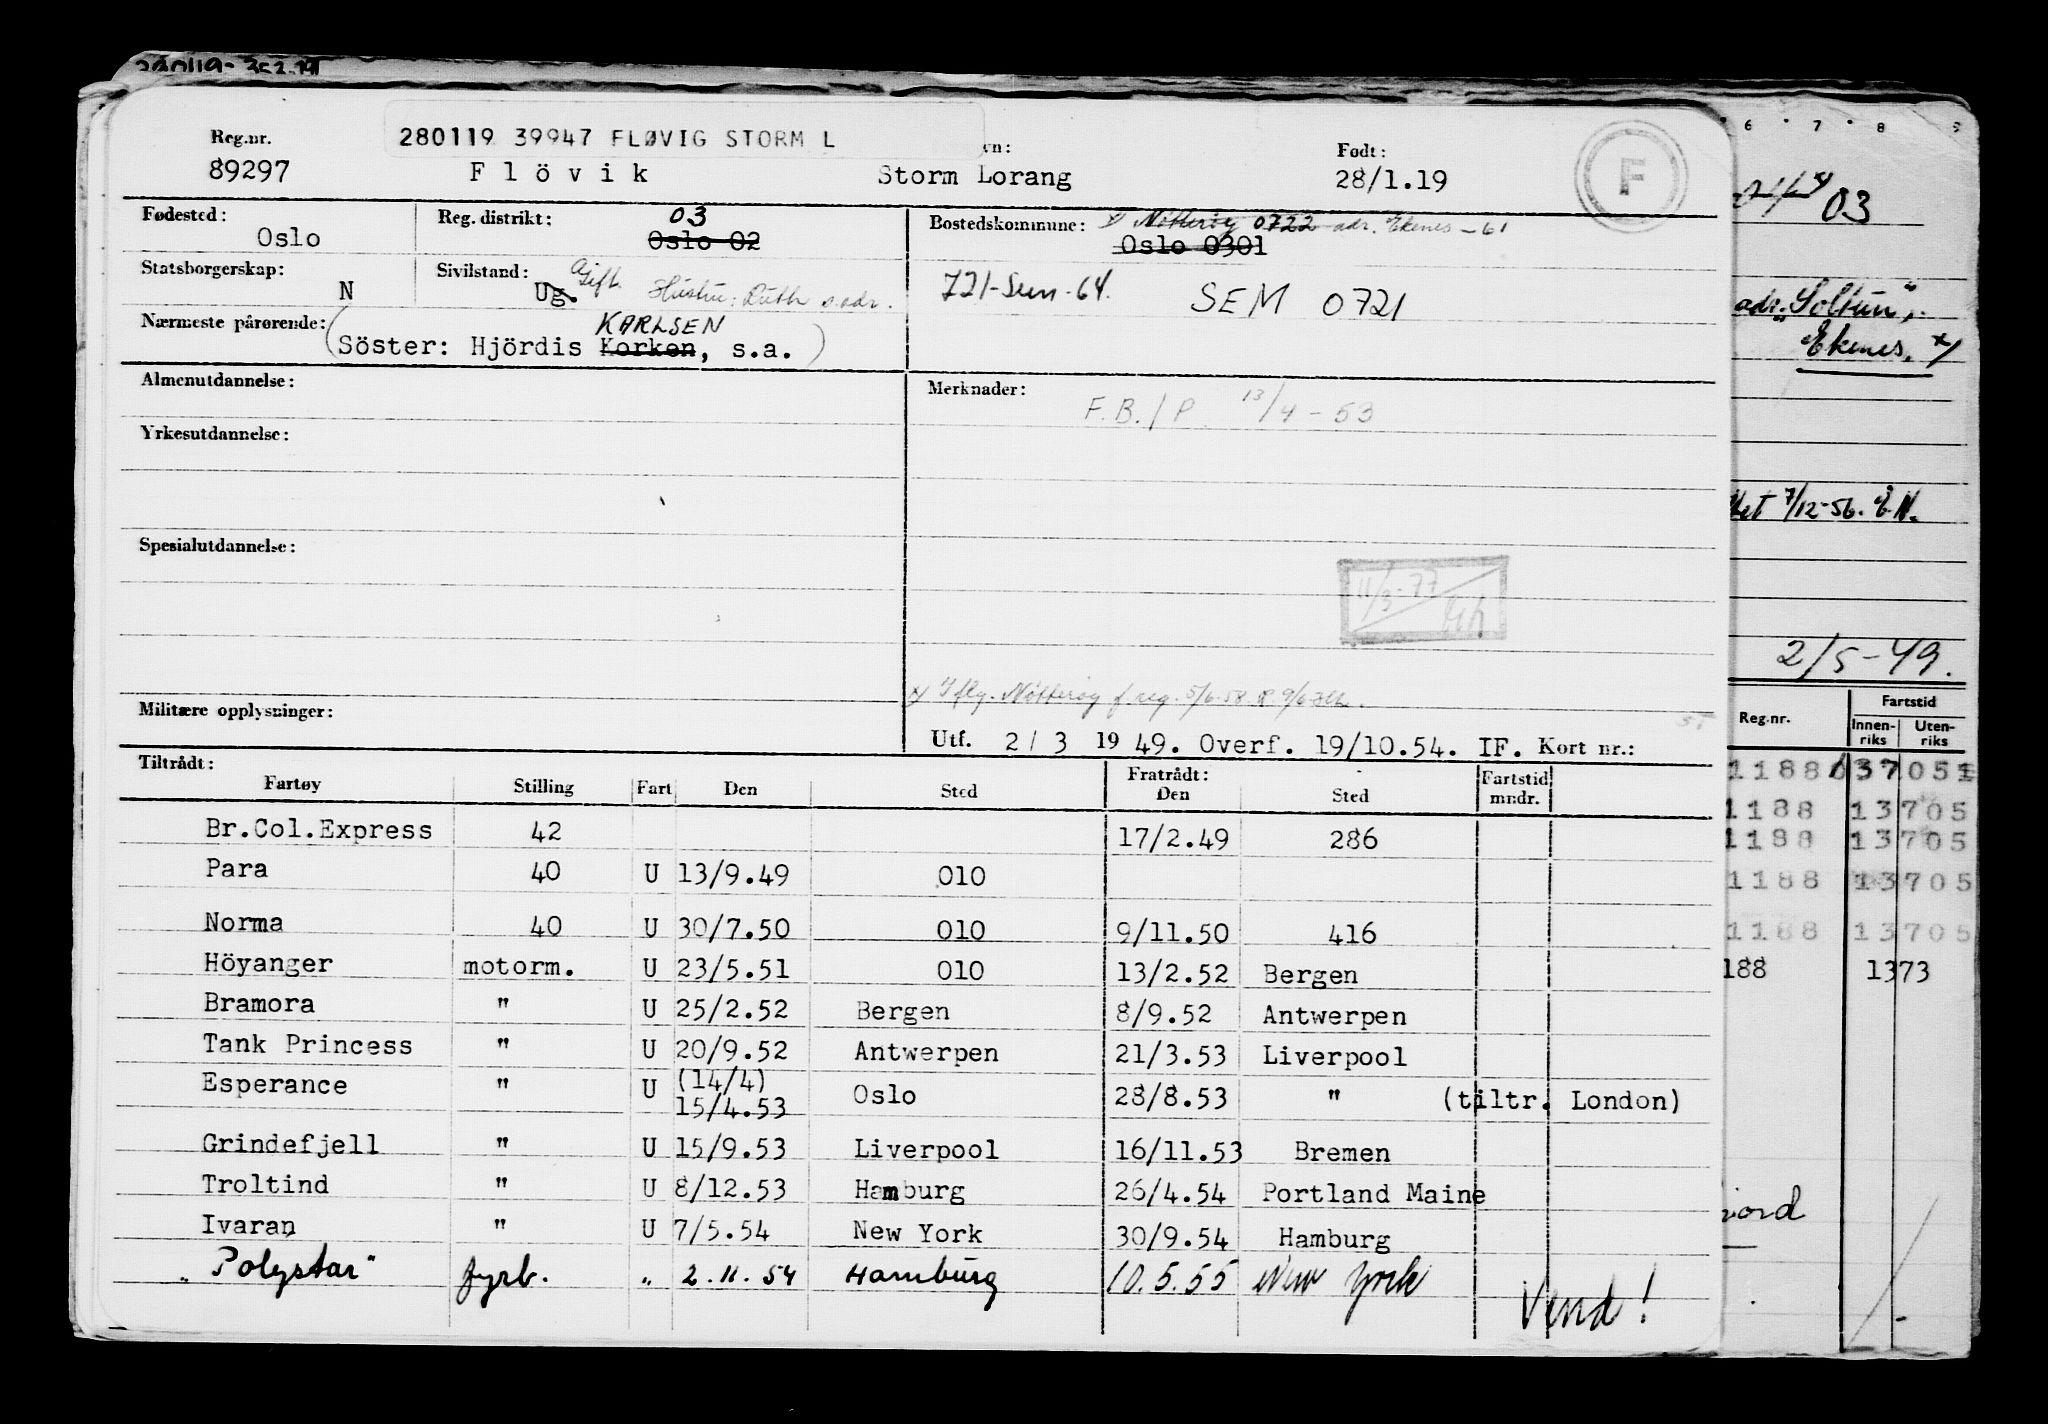 280119 39947 FLØVIG STORM L
Reg.nr. Født:
89297 Flövik Storm Lorang 28/1.19
F
Fødested: Oslo Reg. distrikt: 03 Oslo 02 Bostedskommune: Nötteröy 0722 adr. Ekenes - 61
Oslo 0301
Statsborgerskap: N Sivilstand: Ug. Gift. Hustru: Ruth s.adr. 721-Sem-64. SEM 0721
Nærmeste pårørende: KARLSEN
(Söster: Hjördis Korken, s.a.)
Almenutdannelse: Merknader: F.B./P. 13/4-53
Yrkesutdannelse:
Spesialutdannelse:
11/3-77
Nötteröy f. reg. 5/6.58
Militære opplysninger:
Utf. 2/3 1949. Overf. 19/10.54. IF. Kort nr.:
Tiltrådt: Fratrådt: Fartstid
Fartøy Stilling Fart Den Sted Den Sted mndr.
Br.Col.Express 42 17/2.49 286
Para 40 U 13/9.49 010
Norma 40 U 30/7.50 010 9/11.50 416
Höyanger motorm. U 23/5.51 010 13/2.52 Bergen
Bramora " U 25/2.52 Bergen 8/9.52 Antwerpen
Tank Princess " U 20/9.52 Antwerpen 21/3.53 Liverpool
Esperance " U (14/4) 15/4.53 Oslo 28/8.53 " (tiltr. London)
Grindefjell " U 15/9.53 Liverpool 16/11.53 Bremen
Troltind " U 8/12.53 Hamburg 26/4.54 Portland Maine
Ivaran " U 7/5.54 New York 30/9.54 Hamburg
"Polystar" fyrb. " 2.11.54 Hamburg 10.5.55 New York
Vend!
6 7 8 9
03
adr. "Soltun",
Ekenes. x/
7/12-56. E.N.
2/5-49.
Reg.nr. Fartstid
Innen-riks Uten-riks
1188 137051
1188 13705
1188 13705
1188 13705
1188 13705
188 1373